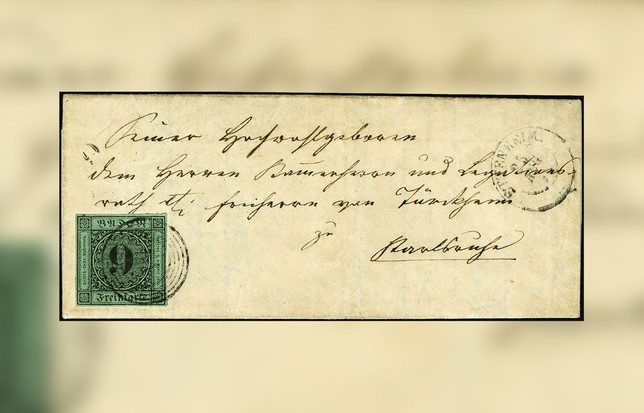 Seiner Hochwohlgeboren
dem Herren Kammerherrn und Legations-
rath
Freiherrn von Türckheim
zu
Karlsruhe
BADEN
9
Freimarke